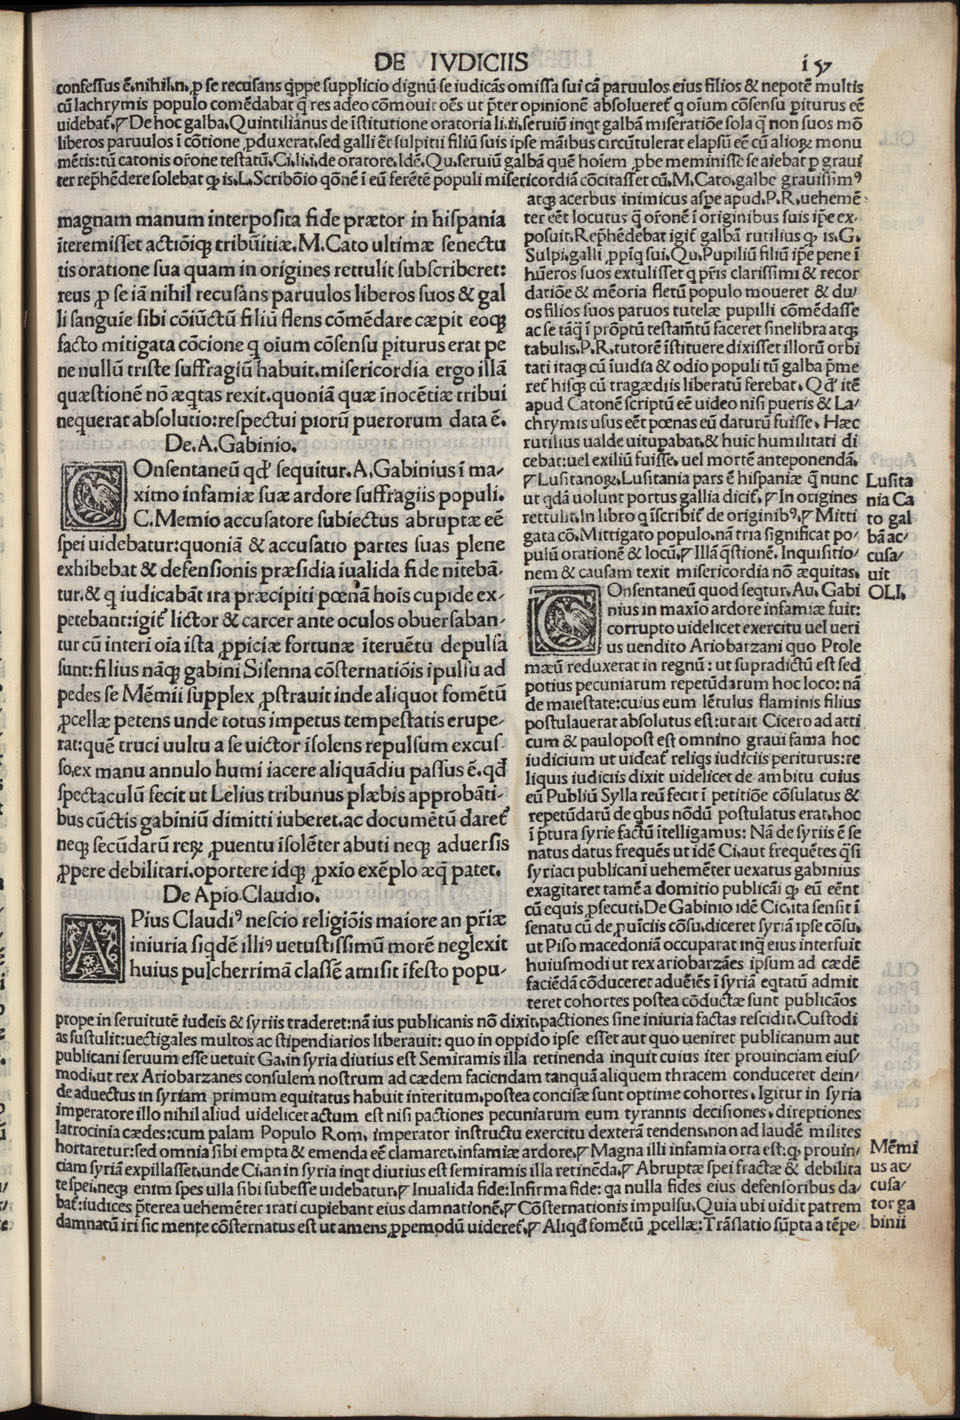 DE IVDICIIS
157
confessus ē.nihil.n.ꝓ se recusans qͥppe supplicio dignū se iudicās omissa sui cā paruulos eius filios & nepotē multis
cū lachrymis populo comēdabat q̄ res adeo cōmouit oēs ut p̄ter opinionē absoluereť q oīum cōsensu piturus eē
uidebať.De hoc galba.Quintilianus de īstitutione oratoria li.ii.seruiū inqt galbā miseratiōe sola q̄ non suos mō
liberos paruulos ī cōtione ꝓduxerat.sed galli ēt sulpitii filiū suis ipse māibus circūtulerat elapsū eē cū alioꝝ monu
mētis:tū catonis orōne testatū.Ci.li.i.de oratore.Idē.Qu.seruiū galbā quē hoīem ꝓbe meminisse se aiebat p graui
ter rep̄hēdere solebat ꝙ is.L.Scribōio qōnē ī eū ferēte populi misericordiā cōcitasset cū.M.Cato.galbe grauissimꝰ
magnam manum interposita fide prætor in hispania
īteremisset actiōiqꝫ tribūitiæ.M.Cato ultimæ senectu
tis oratione sua quam in origines rettulit subscriberet:
reus ꝓ se iā nihil recusans paruulos liberos suos & gal
li sanguīe sibi cōiūctū filiū flens cōmēdare cæpit eoqꝫ
facto mitigata cōcione q oīum cōsensu piturus erat pe
ne nullū triste suffragiū habuit.misericordia ergo illā
quæstionē nō æqtas rexit.quoniā quæ inocētiæ tribui
nequerat absolutio:respectui piorū puerorum data ē.
De.A.Gabinio.
COnsentaneū qđ sequitur.A.Gabinius ī ma/
ximo infamiæ suæ ardore suffragiis populi.
C.Memio accusatore subiectus abruptæ eē
spei uidebatur:quoniā & accusatio partes suas plene
exhibebat & defensionis præsidia iualida fide nitebā/
tur.& q iudicabāt ira præcipiti pœnā hoīs cupide ex/
petebant:igiť lictor & carcer ante oculos obuersaban/
tur cū interi oīa ista ꝓpiciæ fortunæ īteruētu depulsa
sunt:filius nāqꝫ gabini Sisenna cōsternatiōis ipulsu ad
pedes se Mēmii supplex ꝓstrauit inde aliquot fomētū
ꝓcellæ petens unde totus impetus tempestatis erupe/
rat:quē truci uultu a se uictor īsolens repulsum excus/
so.ex manu annulo humi iacere aliquādiu passus ē.qđ
spectaculū fecit ut Lelius tribunus plæbis approbāti/
bus cūctis gabiniū dimitti iuberet.ac documētū dareť
neqꝫ secūdarū reꝝ ꝓuentu īsolēter abuti neqꝫ aduersis
ꝓpere debilitari.oportere idqꝫ ꝓxīo exēplo æqꝫ patet.
De Apio Claudio.
APius Claudiꝰ nescio religiōis maiore an p̄riæ
iniuria siqdē illiꝰ uetustissimū morē neglexit
huius pulcherrimā classē amisit īfesto popu/
atqꝫ acerbus inimicus aspe apud.P.R.uehemē/
ter eēt locutus q̄ orōnē ī originibus suis ip̄e ex/
posuit.Rep̄hēdebat igiť galbā rutilius ꝙ is.G.
Sulpi.galli ꝓp̄iqꝫ sui.Qu.Pupiliū filiū ip̄e pene ī
hūeros suos extulisset q p̄ris clarissimi & recor
datiōe & mēoria fletū populo moueret & du/
os filios suos paruos tutelæ pupilli cōmēdasse
ac se tāq̄ ī prōptū testam̄tū faceret sine libra atqꝫ
tabulis.P.R.tutorē īstituere dixisset illorū orbi
tati itaqꝫ cū īuidia & odio populi tū galba p̄me
reť hisqꝫ cū tragædiis liberatū ferebat.Qđ itē
apud Catonē scriptū eē uideo nisi pueris & La/
chrymis usus eēt pœnas eū daturū fuisse.Hæc
rutilius ualde uitupabat.& huic humilitati di
cebat:uel exiliū fuisse.uel mortē anteponendā.
Lusitanoꝝ.Lusitania pars ē hispaniæ q̄ nunc
ut qdā uolunt portus gallia diciť.In origines
rettulit.In libro q īscribiť de originibꝰ.Mitti
gata cō.Mittigato populo.nā tria significat po/
pulū orationē & locū.Illā q̄stionē.Inquisitio/
nem & causam texit misericordia nō æquitas.
COnsentaneū quod seqtur.Au.Gabi
nius in maxīo ardore infamiæ fuit:
corrupto uidelicet exercitu uel ueri
us uendito Ariobarzani quo Ptole
mæū reduxerat in regnū:ut supradictū est sed
potius pecuniarum repetūdarum hoc loco:nā
de maiestate:cuius eum lētulus flaminis filius
postulauerat absolutus est:ut ait Cicero ad atti
cum & paulopost est omnino graui fama hoc
iudicium ut uideať reliqs iudiciis periturus:re
liquis iudiciis dixit uidelicet de ambitu cuius
eū Publiū Sylla reū fecit ī petitiōe cōsulatus &
repetūdarū de qbus nōdū postulatus erat.hoc
ī p̄tura syrie factū ītelligamus: Nā de syriis ē se
natus datus frequēs ut idē Ci.aut frequētes q̄si
syriaci publicani uehemēter uexatus gabinius
exagitaret tamē a domitio publicāi ꝙ eū eēnt
cū equis ꝓsecuti.De Gabinio idē Cic.ita sensit ī
senatu cū de ꝓuīciis cōsu.diceret syriā ipse cōsu.
ut Piso macedoniā occuparat inq̄ eius interfuit
huiusmodi ut rex ariobarzāes ipsum ad cædē
faciēdā cōduceret aduētiēs ī syriā eqtatū admit
teret cohortes postea cōductæ sunt publicāos
prope in seruitutē iudeis & syriis traderet:nā ius publicanis nō dixit.pactiones sine iniuria factas rescidit.Custodi
as sustulit:uectigales multos ac stipendiarios liberauit: quo in oppido ipse esset aut quo ueniret publicanum aut
publicani seruum esse uetuit Ga.in syria diutius est Semiramis illa retinenda inquit cuius iter prouinciam eius/
modi.ut rex Ariobarzanes consulem nostrum ad cædem faciendam tanquā aliquem thracem conduceret dein/
de aduectus in syriam primum equitatus habuit interitum.postea concisæ sunt optime cohortes.Igitur in syria
imperatore illo nihil aliud uidelicet actum est nisi pactiones pecuniarum eum tyrannis decisiones.direptiones
latrocinia cædes:cum palam Populo Rom. imperator instructu exercitu dexterā tendens.non ad laudē milites
hortaretur:sed omnia sibi empta & emenda eē clamaret.infamiæ ardore.Magna illi infamia orta est:qꝫ prouin/
ciam syriā expillasset.unde Ci.an in syria inqt diutius est semiramis illa retinēda.Abruptæ spei fractæ & debilita
te spei.neqꝫ enim spes ulla sibi subesse uidebatur.Inualida fide:Infirma fide: qa nulla fides eius defensoribus da/
bať:iudices p̄terea uehemēter irati cupiebant eius damnationē.Cōsternationis impulsu.Quia ubi uidit patrem
damnatū iri sic mente cōsternatus est ut amens ꝓpemodū uidereť.Aliqđ fomētū ꝓcellæ:Trāslatio sūpta a tēpe/
Lusita
nia Ca
to gal
bā ac/
cusa/
uit
OLI.
Mēmi
us ac/
cusa/
tor ga
binii